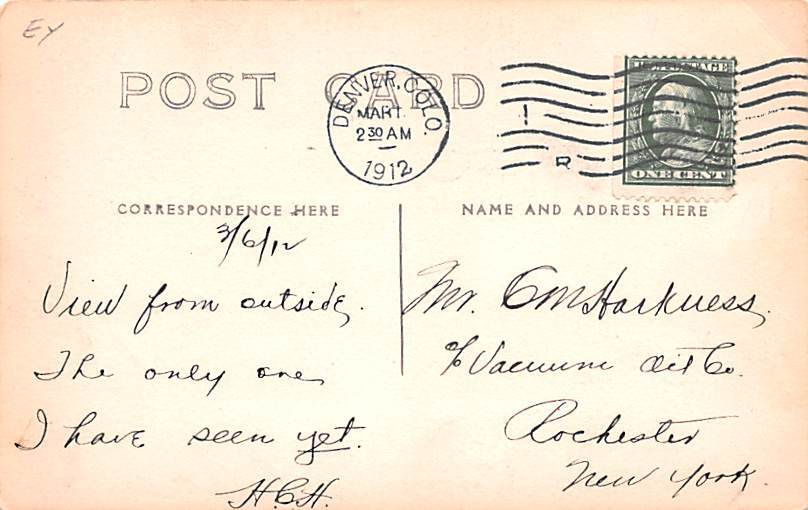 EY
POST CARD
DENVER, COLO.
MAR 7
2 30 AM
1912
U.S. POSTAGE
ONE CENT
R
CORRESPONDENCE HERE
NAME AND ADDRESS HERE
3/6/12
View from outside.
The only one
I have seen yet.
H.C.H.
Mr. C M Harkness,
℅ Vacuum Oil Co.
Rochester
New York.